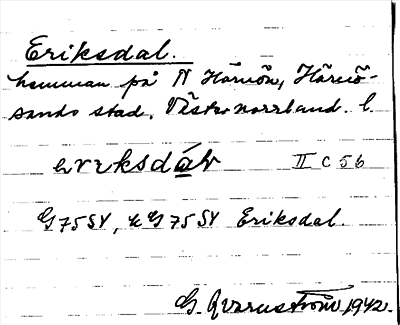 Eriksdal.
hemman på N Härnön, Härnö-
sands stad, Västernorrland. l.
II C 56
G 75 SV, u G 75 SV Eriksdal.
G. Qvarnström 1942.